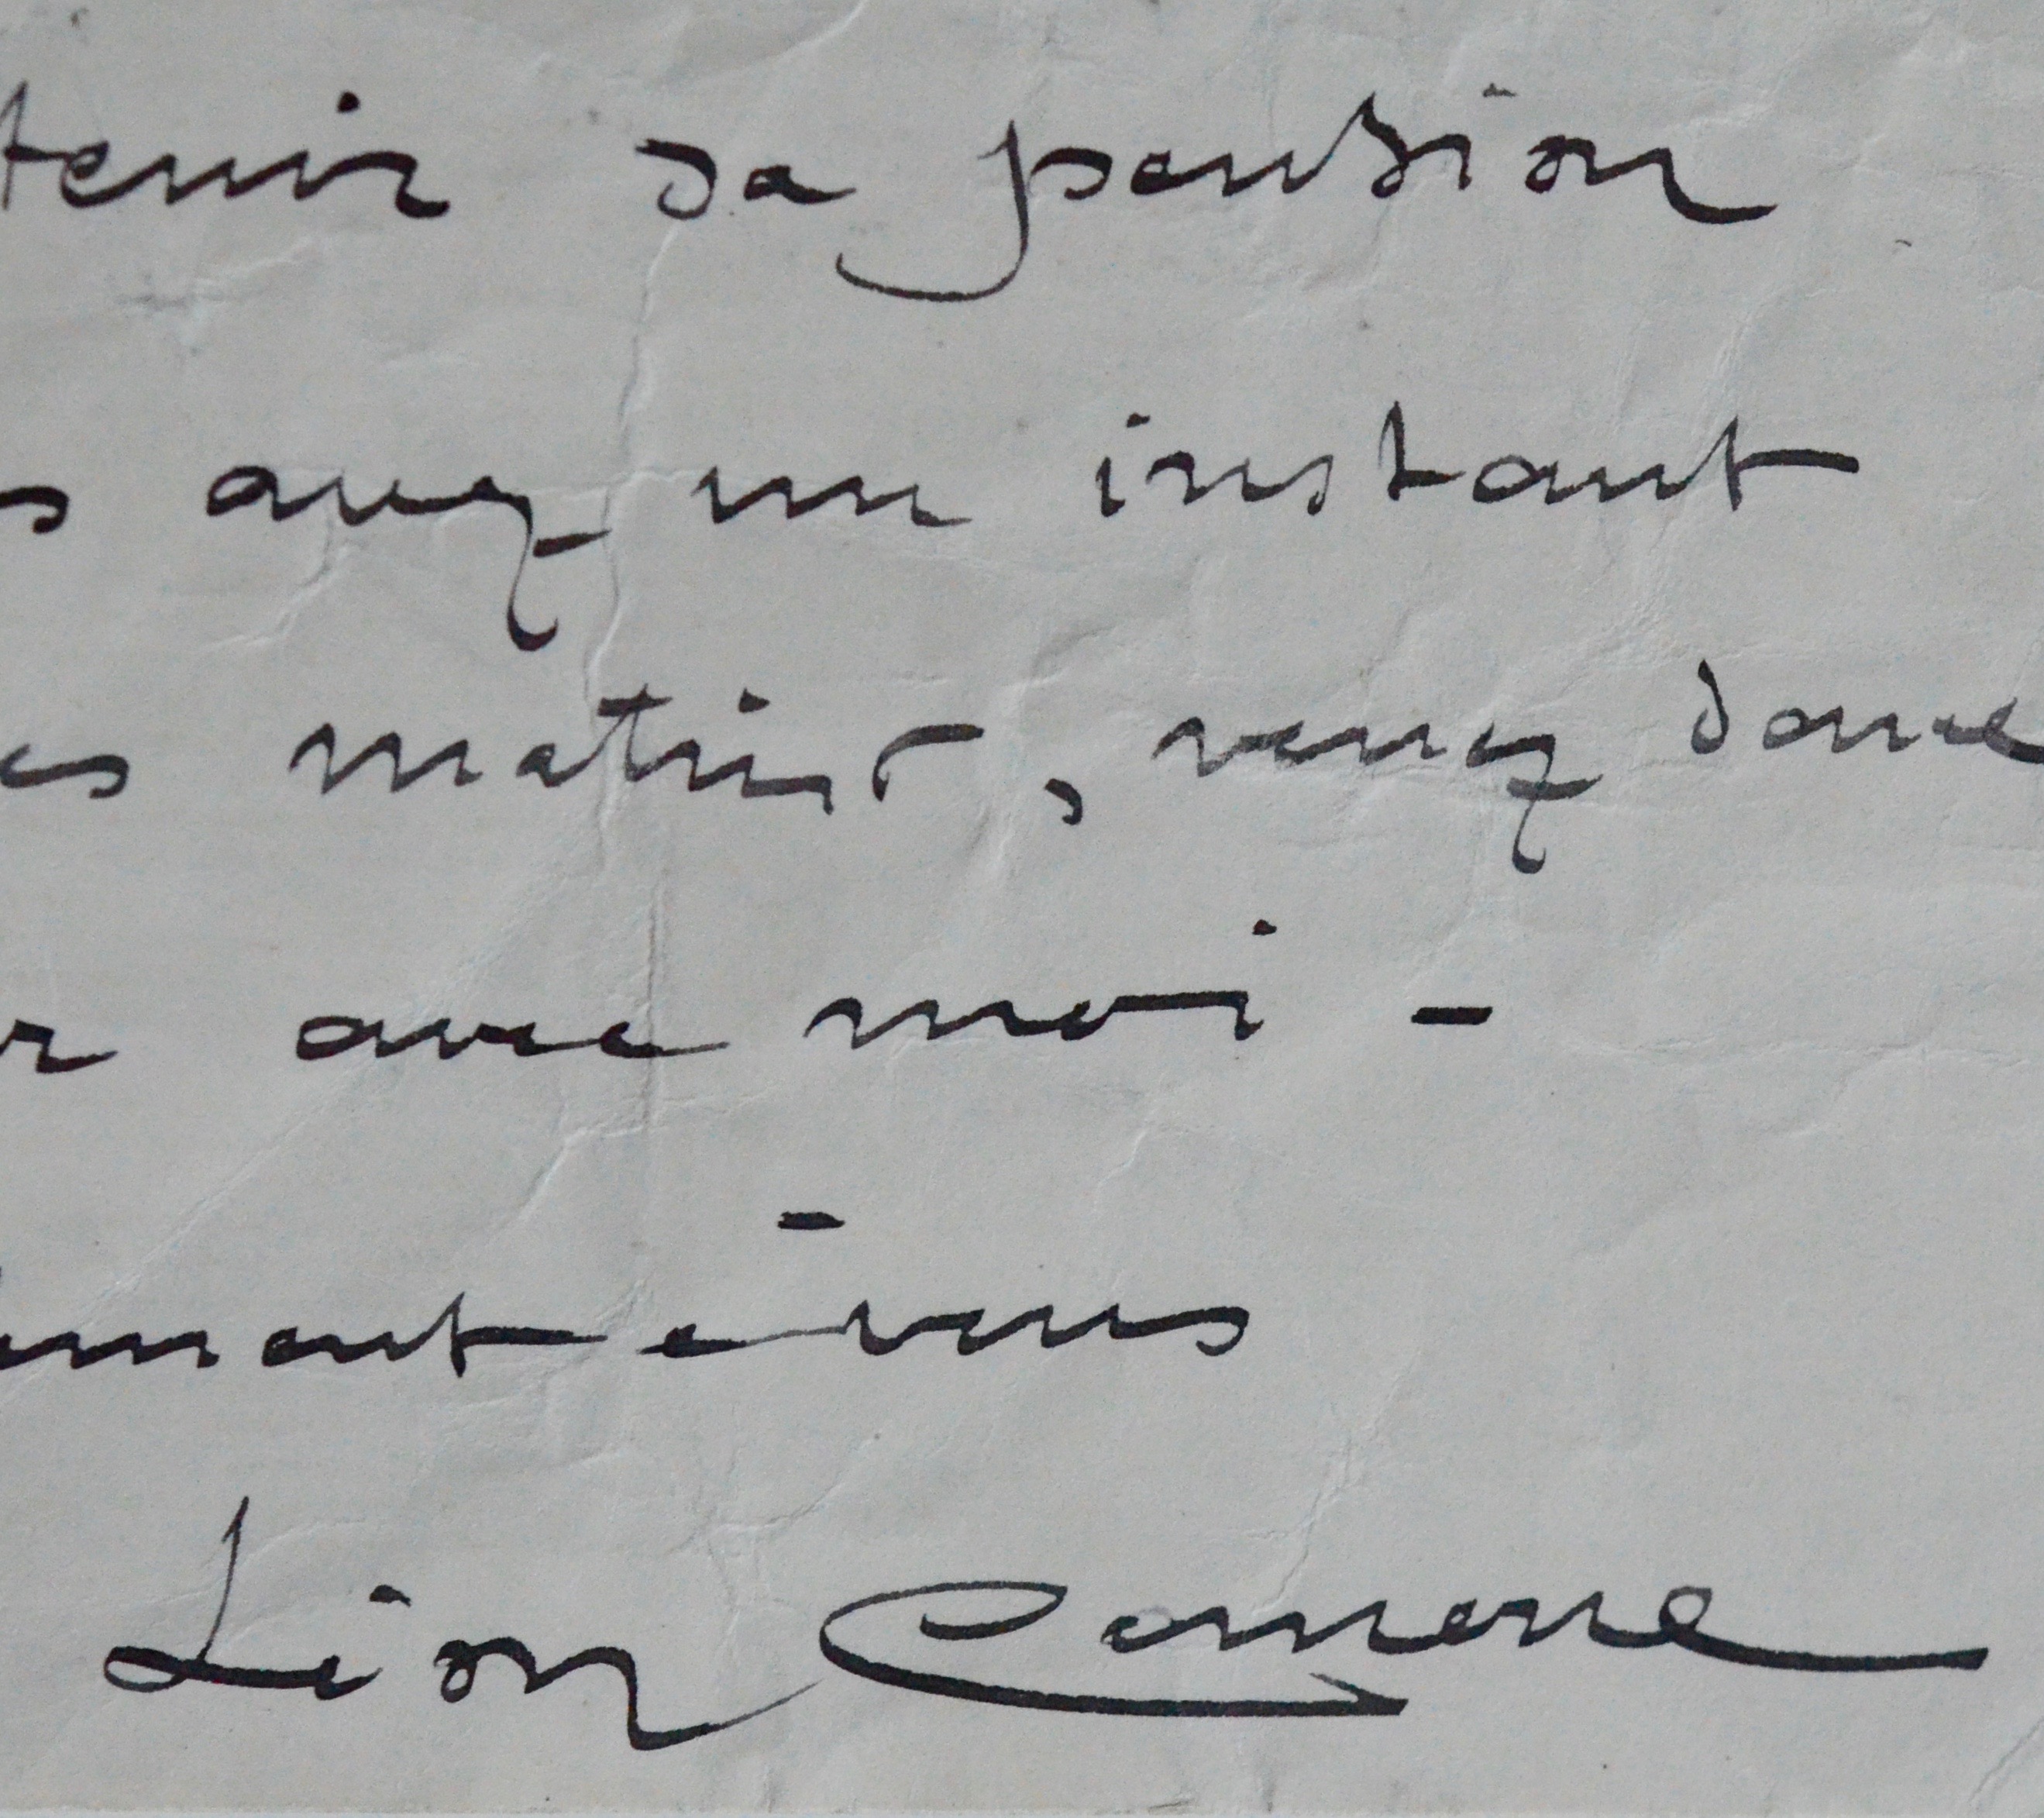 tenir sa pension
s avez un instant
es matins, venez donc
r avec moi -
ement à vous
Léon Comerre